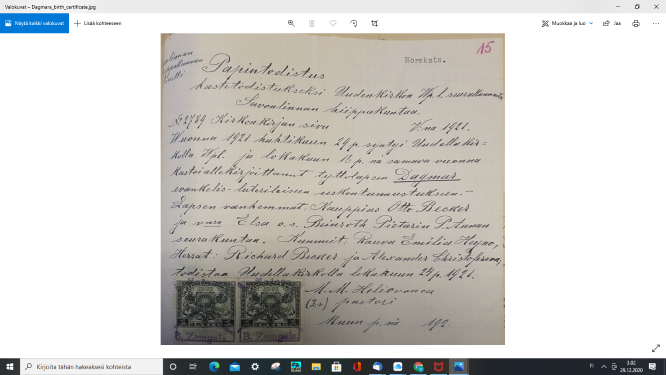 Valokuvat - Dagmara_birth_certificate.jpg
Näytä kaikki valokuvat
Lisää kohteeseen
Muokkaa ja luo
Jaa
15
Noreksta.
Papintodistus
kastetodistukseksi Uudenkirkon Vpl. seurakunnasta
Savonlinnan hiippakuntaa.
No 2789 Kirkonkirjan sivu V:na 1921.
Wuonna 1921 huhtikuun 29 p. syntyi Uudellakir-
kolla Vpl. ja lokakuun 16 p. nä samana vuonna
kastoi allekirjoittanut tyttolapsen Dagmar
evankelis-luterilaiseen uskontunnustukseen.-
Lapsen vanhemmat: Kauppias Otto Becker
ja Elsa o.s. Beinroth Pietarin P. Annan
seurakuntaa. Kummit: Rouva Emilia
Herrat: Richard Becker ja Alexander Christoferson,
todistaa Uudellakirkolla lokakuun 24 p. 1921.
M.M. Heliövaara
pastori
p. nä 192
B. Zemgals
B. Zemgals
Kirjoita tähän hakeaksesi kohteista
3.02
29.12.2020